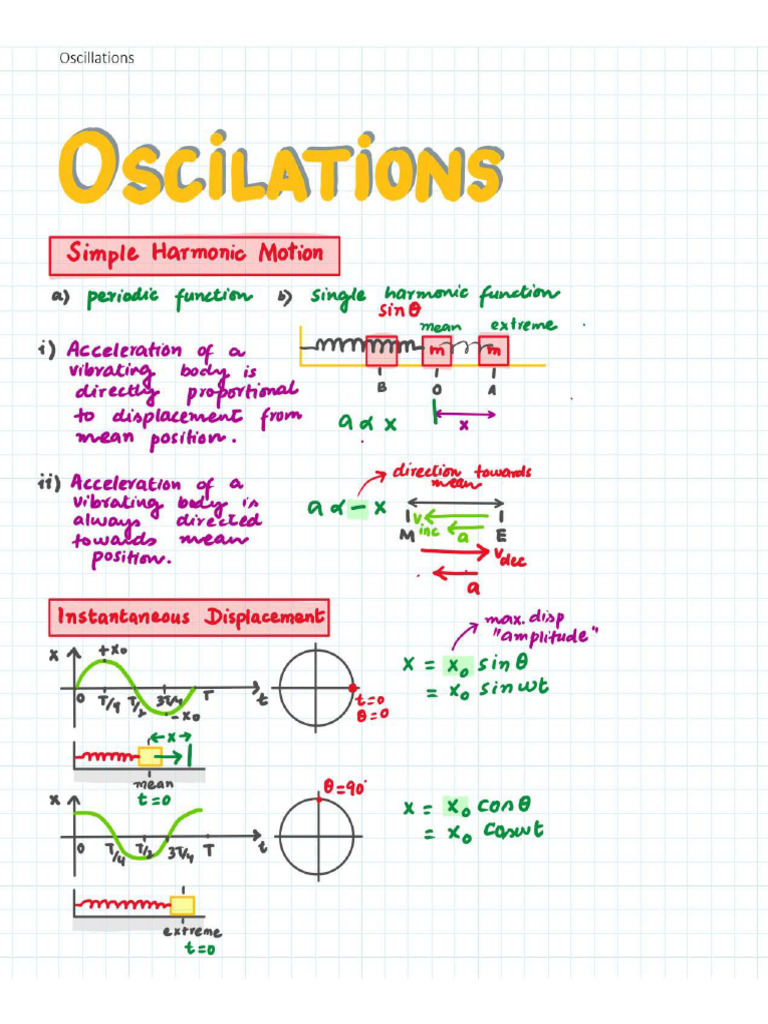 Oscillations
OSCILATIONS
Simple Harmonic Motion
a) periodic function b) single harmonic function
sinθ
mean extreme
i) Acceleration of a
vibrating body is
directly proportional
to displacement from
mean position.
m m
B O A
a α x
x
ii) Acceleration of a
vibrating body is
always directed
towards mean
position.
direction towards
mean
a α - x
M E
v inc
a
v dec
a
Instantaneous Displacement
max. disp
"amplitude"
x = x₀ sinθ
= x₀ sinωt
x +x₀
0 T/4 T/2 3T/4 T t
-x₀
t=0
θ=0
x
mean
t=0
θ=90°
x = x₀ conθ
= x₀ cosωt
x
0 T/4 T/2 3T/4 T t
extreme
t=0